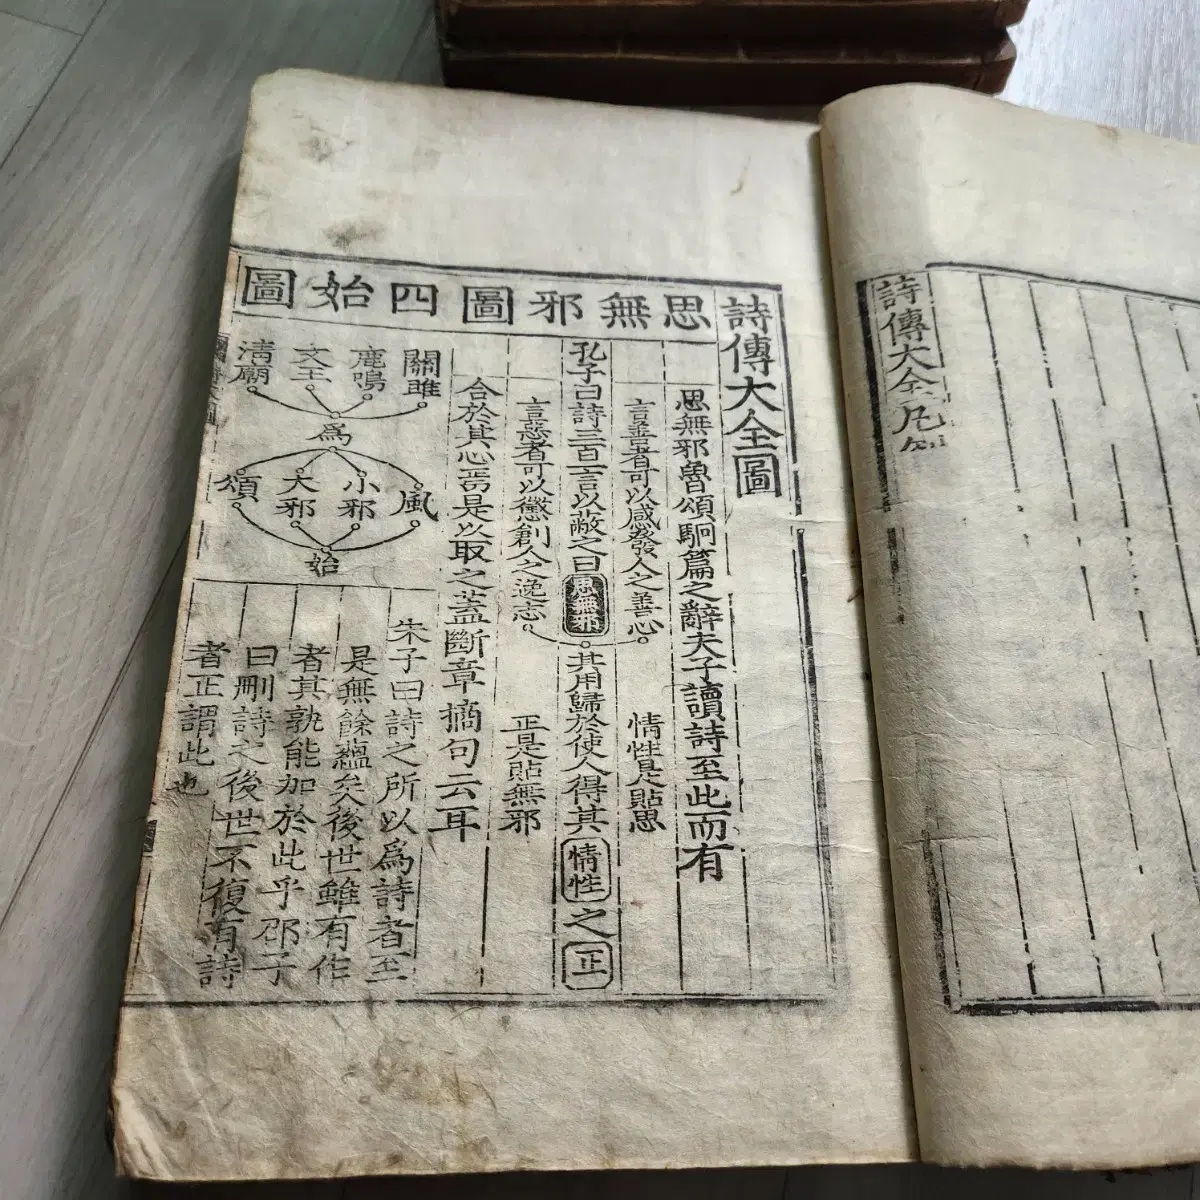 詩傳大全凡
詩傳大全圖
思無邪圖
思無邪魯頌駉篇之辭夫子讀詩至此而有
言善者可以感發人之善心
情性是貼思
孔子曰詩三百一言以蔽之曰思無邪其用歸於使人得其情性之正
言惡者可以懲創人之逸志
正是貼無邪
合於其心焉是以取之蓋斷章摘句云耳
四始圖
關雎
鹿鳴
文王
清廟
爲
風
小邪
大邪
頌
始
朱子曰詩之所以爲詩者至
是無餘蘊矣後世雖有作
者其孰能加於此乎邵子
曰刪詩之後世不復有詩
者正謂此也